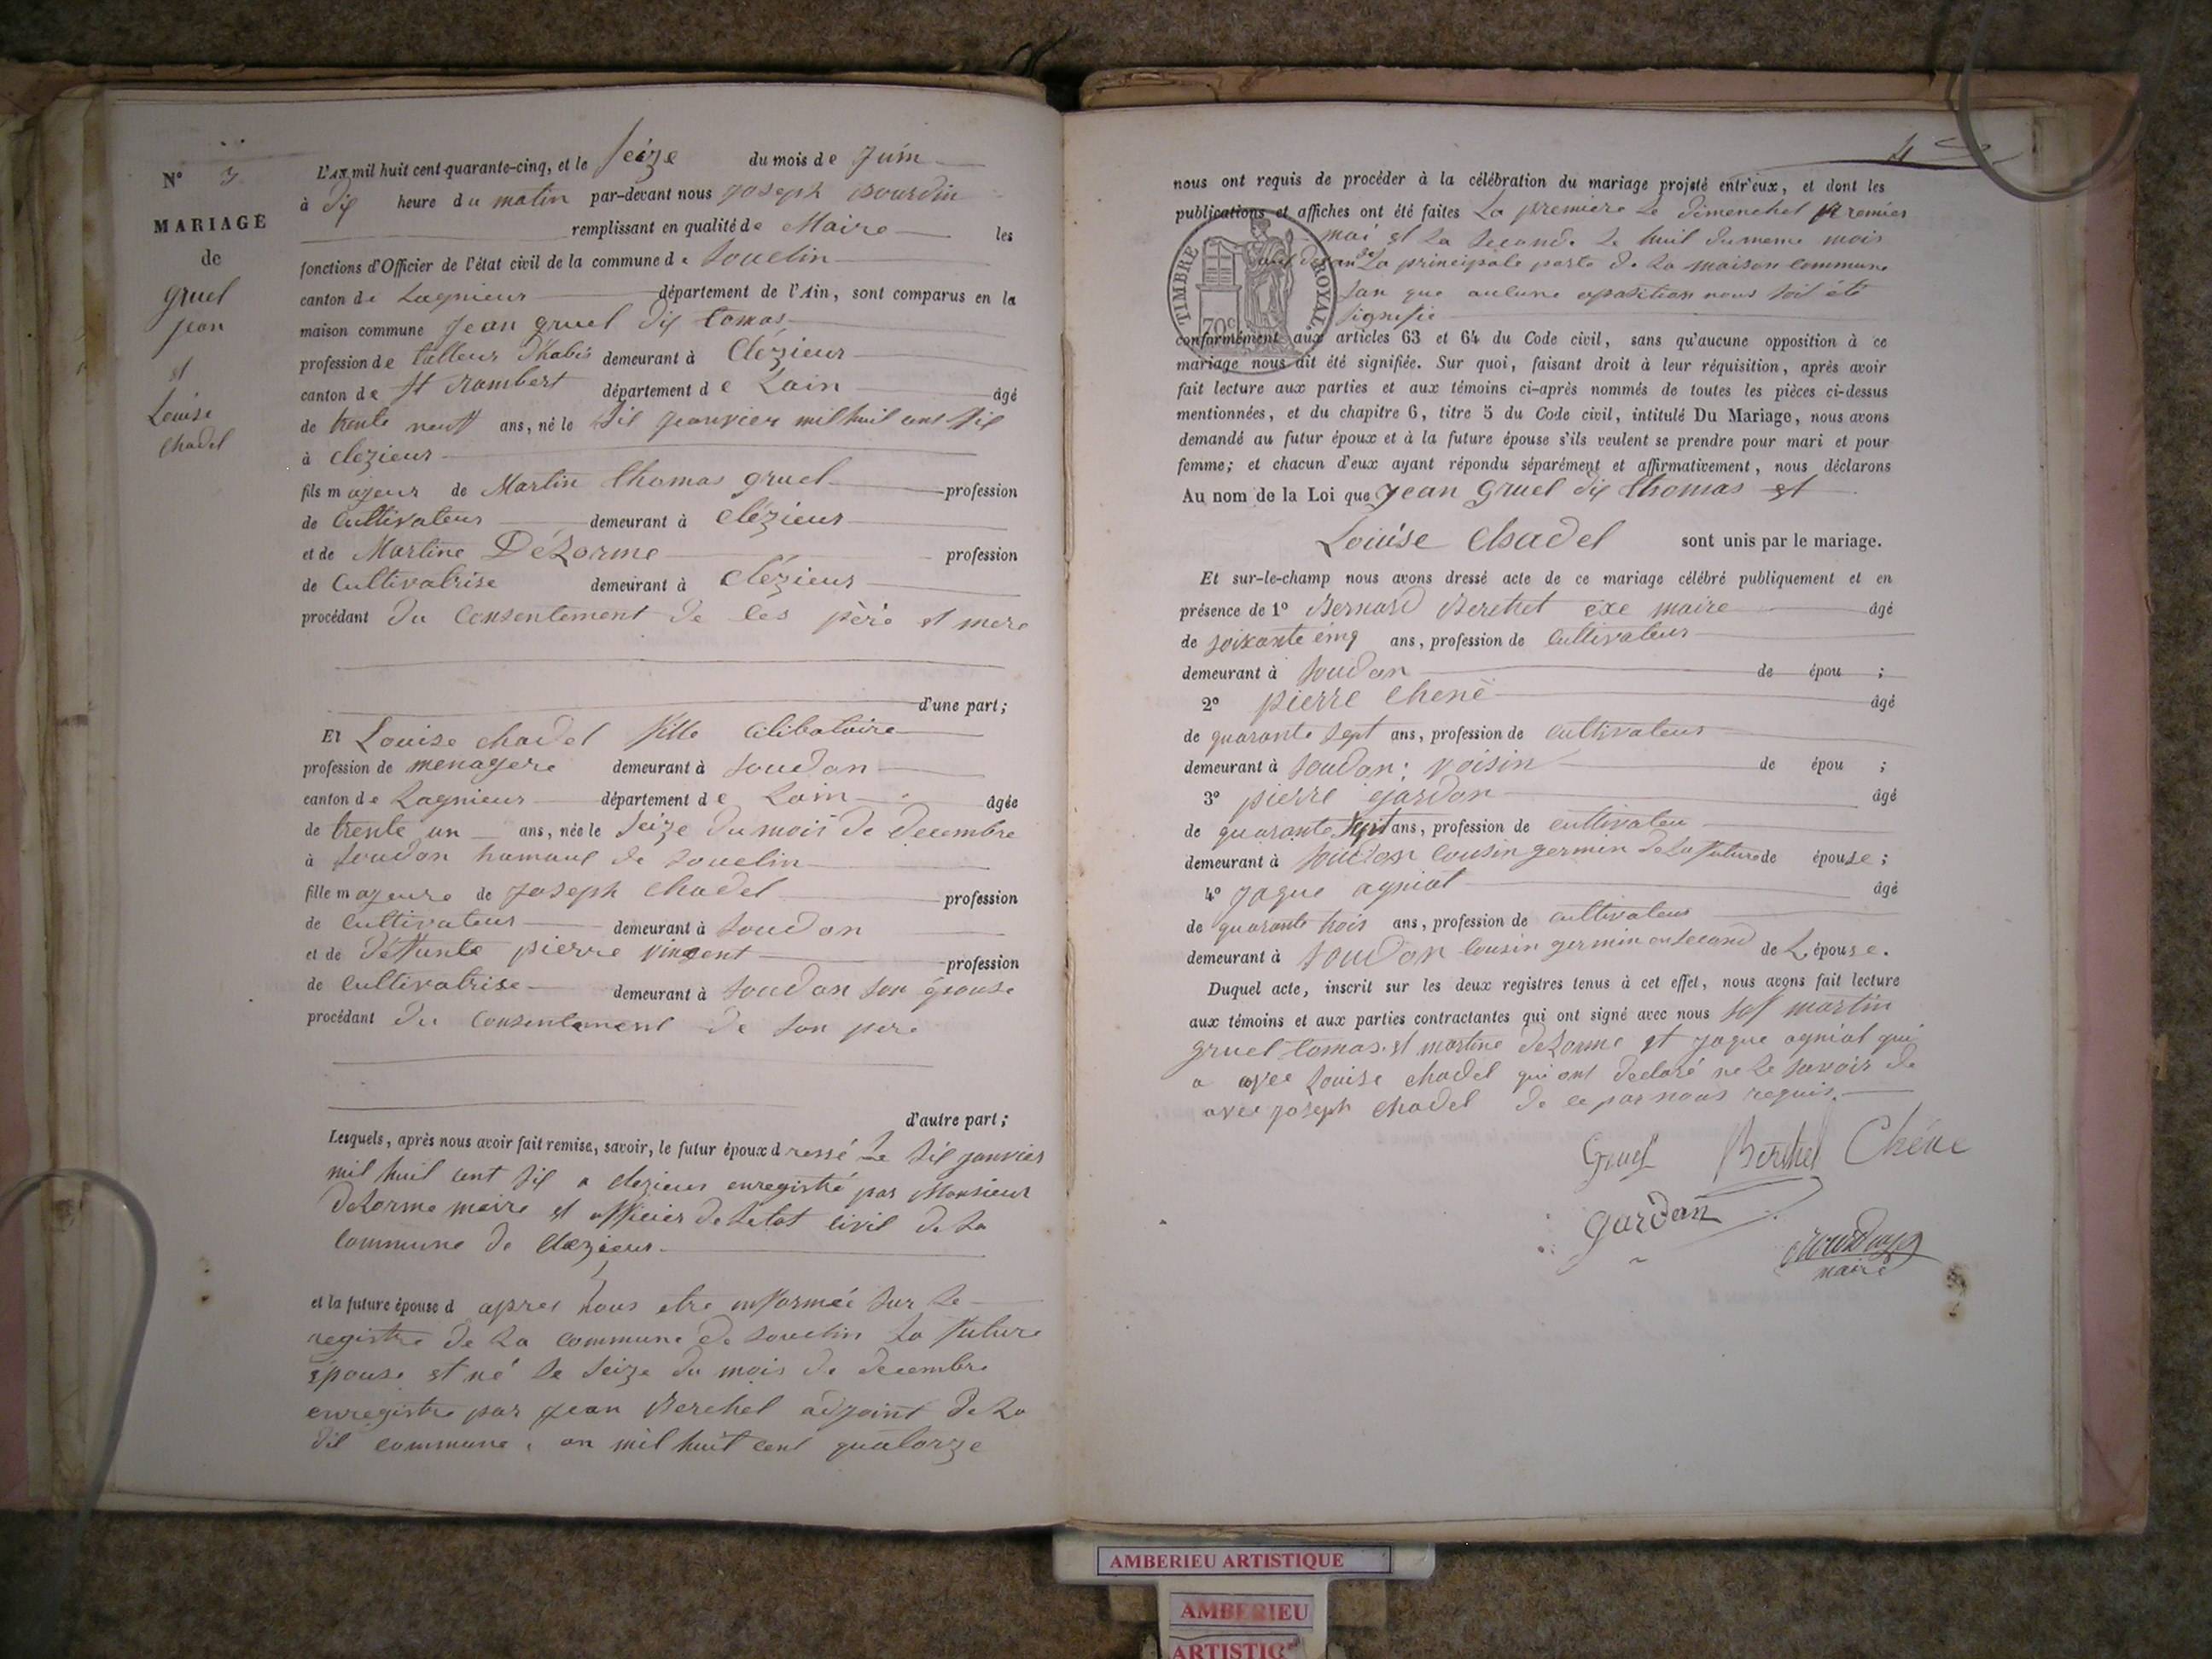 N° 3
MARIAGE
de
gruel
jean
et
Louise
chadel
L'AN mil huit cent quarante-cinq, et le seize du mois de Juin
à dix heure du matin par-devant nous joseph bourdin
remplissant en qualité de Maire les
fonctions d'Officier de l'état civil de la commune de Souclin
canton de Lagnieur département de l'Ain, sont comparus en la
maison commune jean gruel dis tomas
profession de talleur d'habis demeurant à Clézieux
canton de St rambert département de Lain âgé
de trente neuff ans, né le sil janvier mil huit cent sil
à clezieux
fils majeur de Martin thomas gruel profession
de Cultivateur demeurant à clézieux
et de Martine DéLorme profession
de Cultivatrise demeurant à clézieux
procédant du Consentement de ses père et mere
d'une part;
Et Louise chadel fille Célibataire
profession de menagere demeurant à soudon
canton de Lagnieux département de Lain âgée
de trente un ans, née le seize du mois de decembre
à soudon hamaux de souclin
fille majeure de joseph chadel profession
de Cultivateur demeurant à soudon
et de deffunte pierre vincent profession
de Cultivatrise demeurant à soudon son épouse
procédant du Consentement de son pere
d'autre part;
Lesquels, après nous avoir fait remise, savoir, le futur époux dressé Le sil janvier
mil huit cent sil a clezieux enregistré par Monsieur
deLorme maire et officier de Letat civil de La
commune de clezieux
et la future épouse d apres nous etre informée sur Le
registre de La commune de souclin La future
épouse et né Le seize du mois de decembre
enregistre par jean Berthet adjoint de La
dit commune, an mil huit cent quatorze
nous ont requis de procéder à la célébration du mariage projeté entr'eux, et dont les
publications et affiches ont été faites La premiere Le dimenchet premier
mai et La seconde Le huit du meme mois
La principale porte de La maison commune
san que aucune oposition nous soit été
signifié
conformément aux articles 63 et 64 du Code civil, sans qu'aucune opposition à ce
mariage nous ait été signifiée. Sur quoi, faisant droit à leur réquisition, après avoir
fait lecture aux parties et aux témoins ci-après nommés de toutes les pièces ci-dessus
mentionnées, et du chapitre 6, titre 5 du Code civil, intitulé Du Mariage, nous avons
demandé au futur époux et à la future épouse s'ils veulent se prendre pour mari et pour
femme; et chacun d'eux ayant répondu séparément et affirmativement, nous déclarons
Au nom de la Loi que jean gruel dis thomas et
Louise chadel sont unis par le mariage.
Et sur-le-champ nous avons dressé acte de ce mariage célébré publiquement et en
présence de 1° Bernard Berthet exe maire âgé
de soixante cinq ans, profession de Cultivateur
demeurant à soudon de épou ;
2° pierre chenè âgé
de quarante sept ans, profession de cultivateur
demeurant à soudon: voisin de épou ;
3° pierre gardon âgé
de quarante sept ans, profession de cultivateu
demeurant à soudon cousin germen de La future de épouse;
4° jaque agniat âgé
de quarante trois ans, profession de cultivateur
demeurant à soudon cousin germin en second de L'épouse.
Duquel acte, inscrit sur les deux registres tenus à cet effet, nous avons fait lecture
aux témoins et aux parties contractantes qui ont signé avec nous sof martin
gruel tomas et martine deLorme et jaque agniat qui
a avec Louise chadel qui ont declaré ne Le savoir de
avec joseph chadel de ce par nous requis
Gruel Berthet Chéne
gardon
maire
TIMBRE ROYAL
70c
AMBERIEU ARTISTIQUE
AMBERIEU
ARTISTIQ